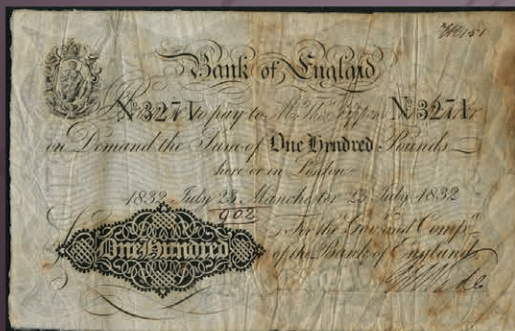 Bank of England
No 3271 to pay to Mr Thos No 3271
on Demand the Sum of One Hundred Pounds
here or in London
1832 July 23 Manchester 23 July 1832
902
For the Govr and Compa
One Hundred
of the Bank of England